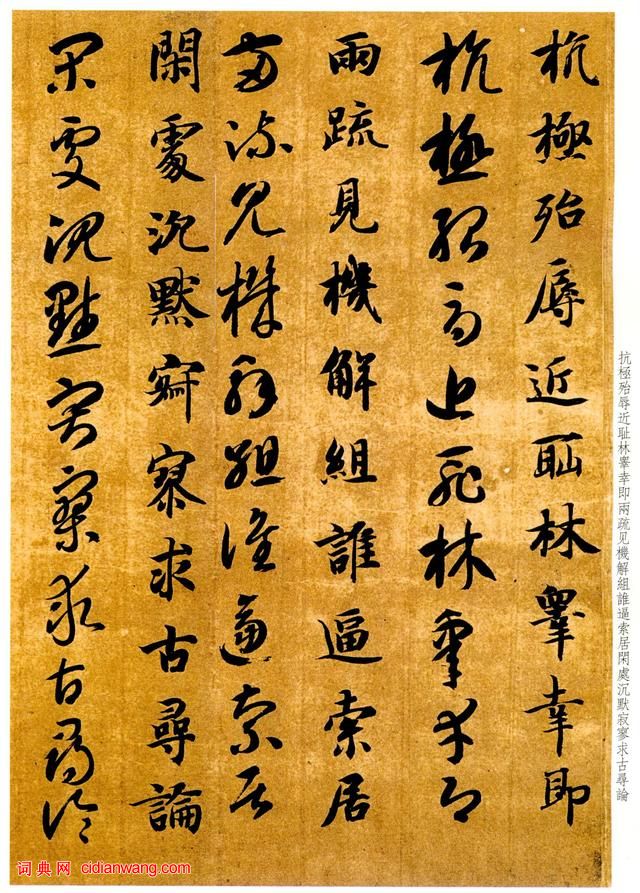 抗極殆辱近耻林睾幸即
抗極殆辱近耻林睾幸即
兩疏見機解組誰逼索居
兩疏見機解組誰逼索居
閑處沉默寂寥求古尋論
閑處沉默寂寥求古尋論
抗極殆辱近耻林睾幸即兩疏见機解組誰逼索居閑處沉默寂寥求古尋論
词典网 cidianwang.com